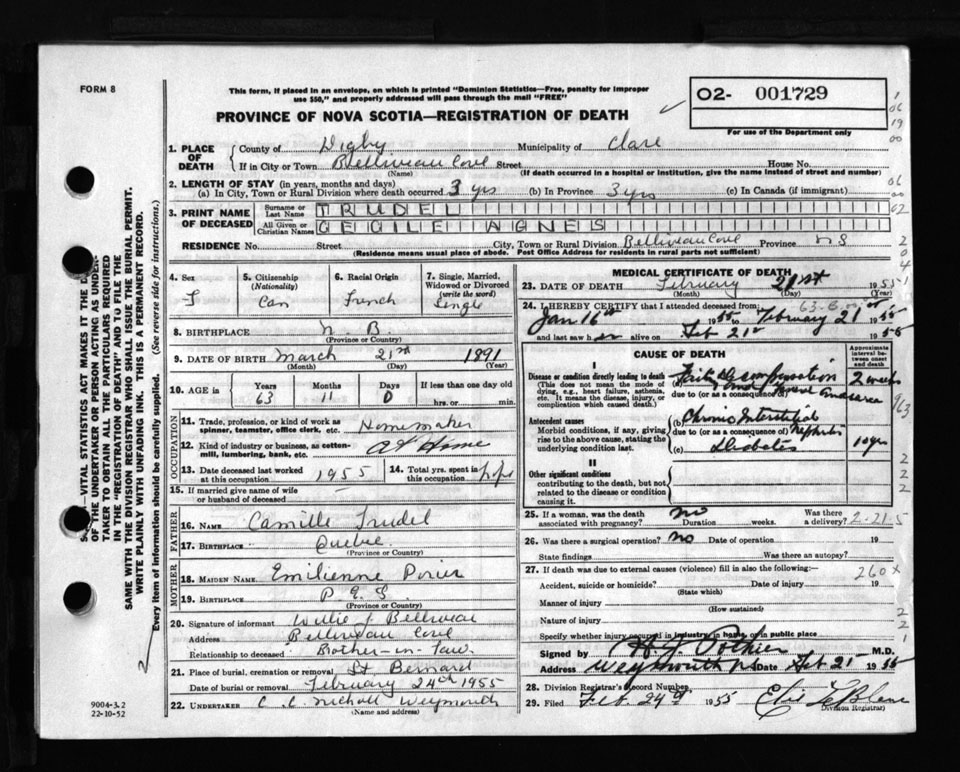 FORM 8
This form, if placed in an envelope, on which is printed "Dominion Statistics—Free, penalty for improper
use $50," and properly addressed will pass through the mail "FREE"
PROVINCE OF NOVA SCOTIA—REGISTRATION OF DEATH
02- 001729
For use of the Department only
1. PLACE OF DEATH
County of Digby Municipality of Clare
If in City or Town Belliveau Cove Street House No.
(Name) (If death occurred in a hospital or institution, give the name instead of street and number)
2. LENGTH OF STAY (in years, months and days)
(a) In City, Town or Rural Division where death occurred 3 yrs (b) In Province 3 yrs (c) In Canada (if immigrant)
3. PRINT NAME OF DECEASED
Surname or Last Name TRUDEL
All Given or Christian Names CECILE AGNES
RESIDENCE No. Street City, Town or Rural Division Belliveau Cove Province N S
(Residence means usual place of abode. Post Office Address for residents in rural parts not sufficient)
4. Sex F
5. Citizenship (Nationality) Can
6. Racial Origin French
7. Single, Married, Widowed or Divorced (write the word) Single
8. BIRTHPLACE N. B.
(Province or Country)
9. DATE OF BIRTH March 21st 1891
(Month) (Day) (Year)
10. AGE in Years 63 Months 11 Days 0 If less than one day old
hrs. or min.
OCCUPATION
11. Trade, profession, or kind of work as spinner, teamster, office clerk, etc. Homemaker
12. Kind of industry or business, as cotton-mill, lumbering, bank, etc. At Home
13. Date deceased last worked at this occupation 1955
14. Total yrs. spent in this occupation
15. If married give name of wife or husband of deceased
FATHER
16. NAME Camille Trudel
17. BIRTHPLACE Quebec
(Province or Country)
MOTHER
18. MAIDEN NAME Emilienne Poirier
19. BIRTHPLACE P E I
(Province or Country)
20. Signature of informant Willie J Belliveau
Address Belliveau Cove
Relationship to deceased Brother-in-law
21. Place of burial, cremation or removal St Bernard
Date of burial or removal February 24th 1955
22. UNDERTAKER C. C. Nichols Weymouth
(Name and address)
MEDICAL CERTIFICATE OF DEATH
23. DATE OF DEATH February 21st 1955
(Month) (Day) (Year)
24. I HEREBY CERTIFY that I attended deceased from:
Jan 16th 1955 to February 21 1955
and last saw h er alive on Feb 21st 1955
CAUSE OF DEATH
Approximate interval between onset and death
I
Disease or condition directly leading to death
(This does not mean the mode of dying, e.g., heart failure, asthenia, etc. It means the disease, injury, or complication which caused death.)
(a) and Anasarca 2 weeks
due to (or as a consequence of)
Antecedent causes
Morbid conditions, if any, giving rise to the above cause, stating the underlying condition last.
(b) Chronic Interstitial
due to (or as a consequence of) Nephritis
(c) Diabetes 10 yrs
II
Other significant conditions contributing to the death, but not related to the disease or condition causing it.
25. If a woman, was the death associated with pregnancy? no Duration weeks. Was there a delivery?
26. Was there a surgical operation? no Date of operation 19
State findings Was there an autopsy?
27. If death was due to external causes (violence) fill in also the following:—
260x
Accident, suicide or homicide? Date of injury 19
(State which)
Manner of injury
(How sustained)
Nature of injury
Specify whether injury occurred in industry, in home, or in public place
Signed by H. J. Pothier M.D.
Address Weymouth N S Date Feb 21 1955
28. Division Registrar's Record Number
29. Filed Feb. 24th 1955 Elie LeBlanc
Division Registrar)
9004-3.2
22-10-52
VITAL STATISTICS ACT MAKES IT THE
OF THE UNDERTAKER OR PERSON ACTING AS UNDER-
TAKER TO OBTAIN ALL THE PARTICULARS REQUIRED
IN THE "REGISTRATION OF DEATH" AND TO FILE THE
SAME WITH THE DIVISION REGISTRAR WHO SHALL ISSUE THE BURIAL PERMIT.
WRITE PLAINLY WITH UNFADING INK. THIS IS A PERMANENT RECORD.
Every item of information should be carefully supplied. (See reverse side for instructions.)